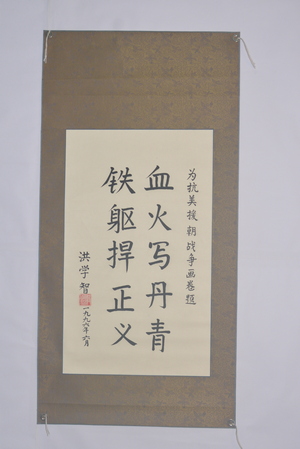 为抗美援朝战争画卷题
血火写丹青
铁躯捍正义
洪学智
一九九六年六月